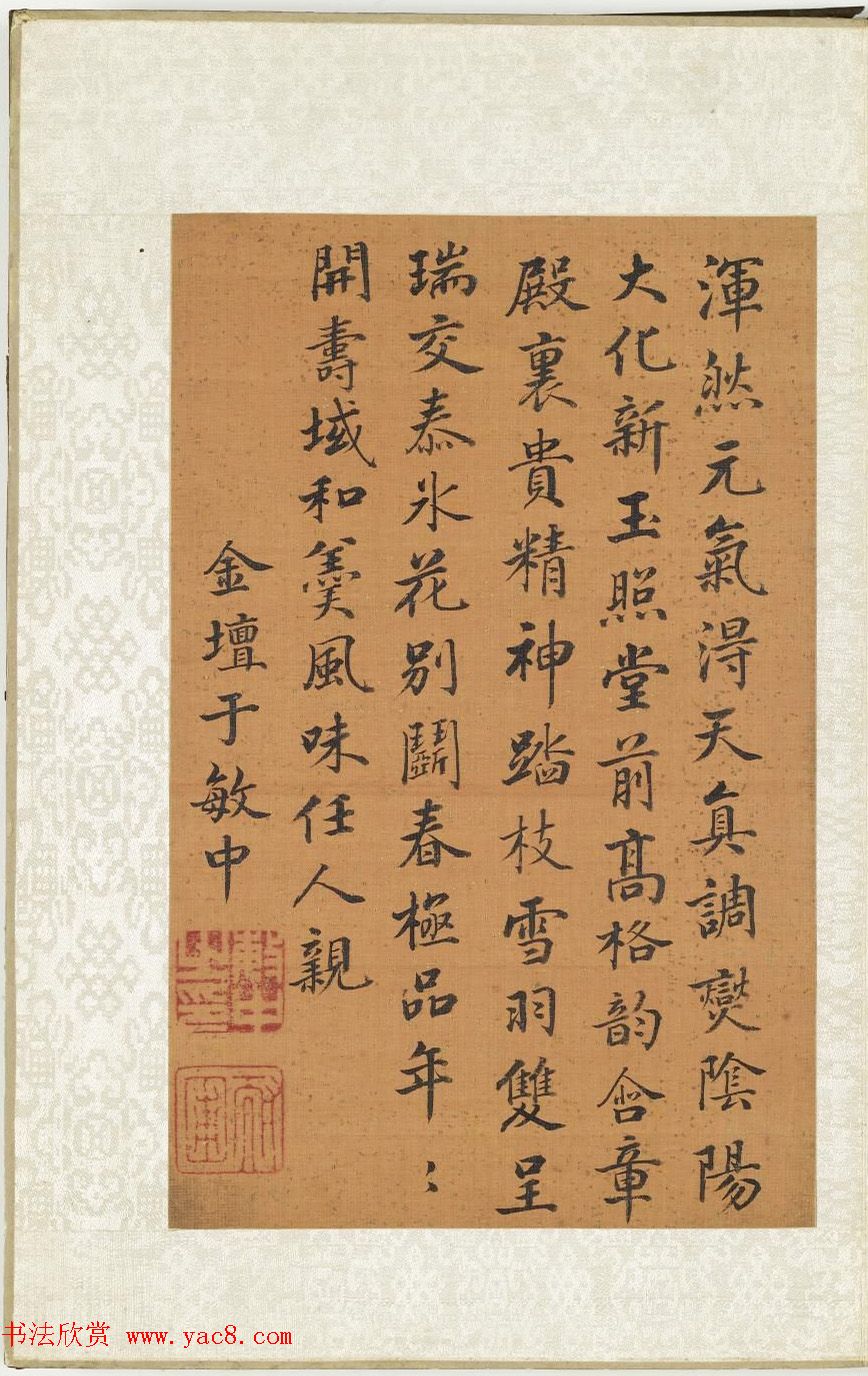 渾然元氣淂天真調燮陰陽
大化新玉照堂前髙格韵含章
殿裏貴精神踏枝雪羽雙呈
瑞交泰氷花別鬭春極品年〻
開壽域和羹風味任人親
金壇于敏中
书法欣赏 www.yac8.com